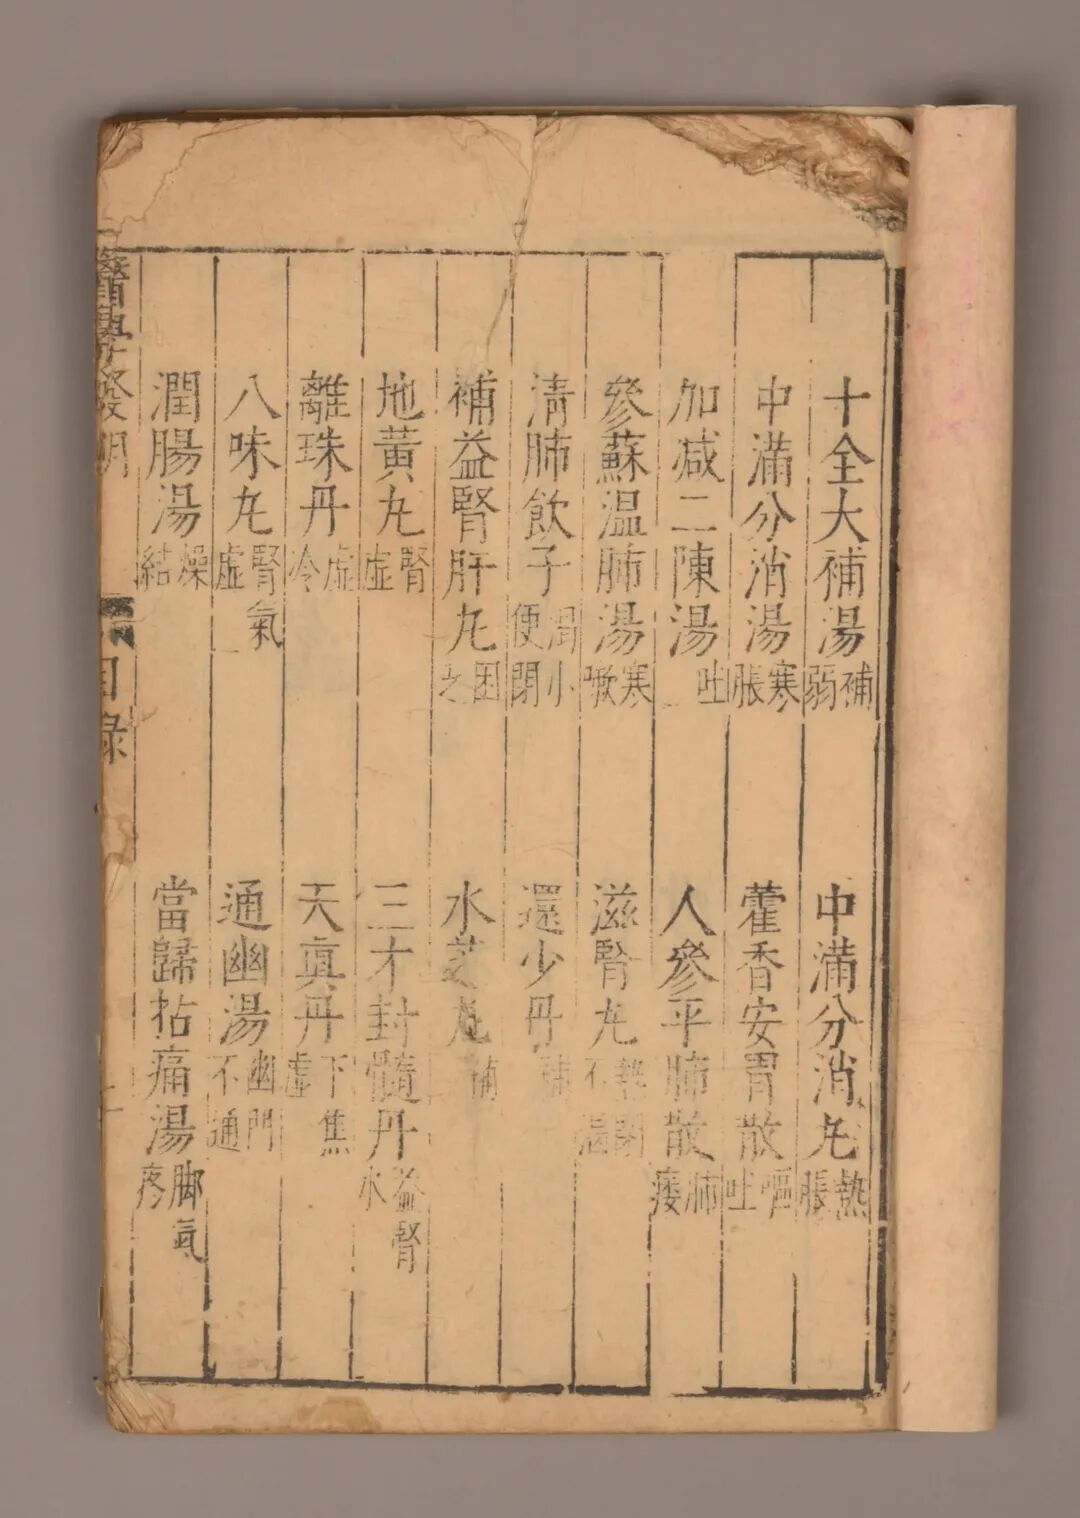 十全大補湯 補弱 中滿分消丸 熱脹
中滿分消湯 寒脹 藿香安胃散 嘔吐
加减二陳湯 吐 人參平肺散 肺痿
參蘇温肺湯 寒嗽 滋腎丸 熱閉不渴
清肺飲子 渴小便閉 還少丹 補
補益腎肝丸 困 水芝丸 補
地黃丸 腎虛 三才封髓丹 益腎水
離珠丹 虛冷 天真丹 下焦虛
八味丸 腎氣虛 通幽湯 幽門不通
潤腸湯 燥結 當歸拈痛湯 脚氣疼
醫學發明 目錄